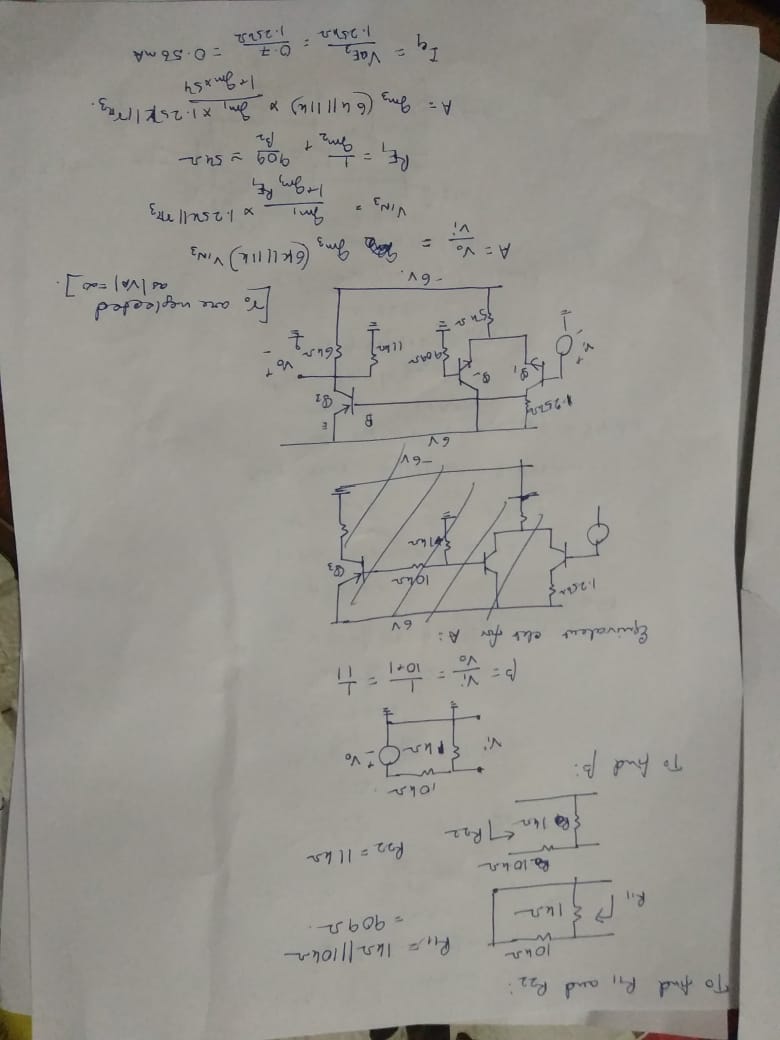 To find R11 and R22:
10kΩ
R11
1kΩ
R11 = 1kΩ||10kΩ
= 909Ω.
10kΩ
1kΩ
R22
R22 = 11kΩ
To find β:
10kΩ
Vi
1kΩ
+ Vo
-
β = Vi/Vo = 1/(10+1) = 1/11
Equivalent ckt for A:
6V
1.25kΩ
10kΩ
Q3
1kΩ
-6V
6V
1.25kΩ
B
E
Q3
Q1
Q2
909Ω
Vi
+
-
5kΩ
11kΩ
6kΩ
Vo
+
-
-6V.
[ro are neglected
as |VA| = ∞].
A = Vo/Vi = gm3 (6k||11k) VIN3
VIN3 = gm1/(1+gm, RE1) × 1.25k||rπ3
RE1 = 1/gm2 + 909/β2 ≃ 54Ω
A = gm3 (6k||11k) × (gm1 × 1.25k||rπ3)/(1+gm×54).
= 0.7/1.25kΩ = 0.56mA